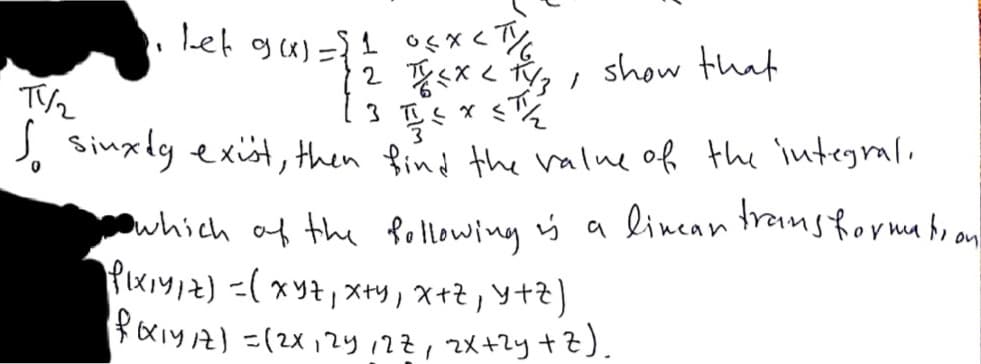 . Let g(x) = { 1 0 ≤ x < π/6
2 π/6 ≤ x < π/3 , show that
3 π/3 ≤ x ≤ π/2
∫₀^{π/2} sinxdg exist, then find the value of the integral.
which of the following is a linear transformation
f(x,y,z) = (xyz, x+y, x+z, y+z)
f(x,y,z) = (2x, 2y, 2z, 2x+2y+z).